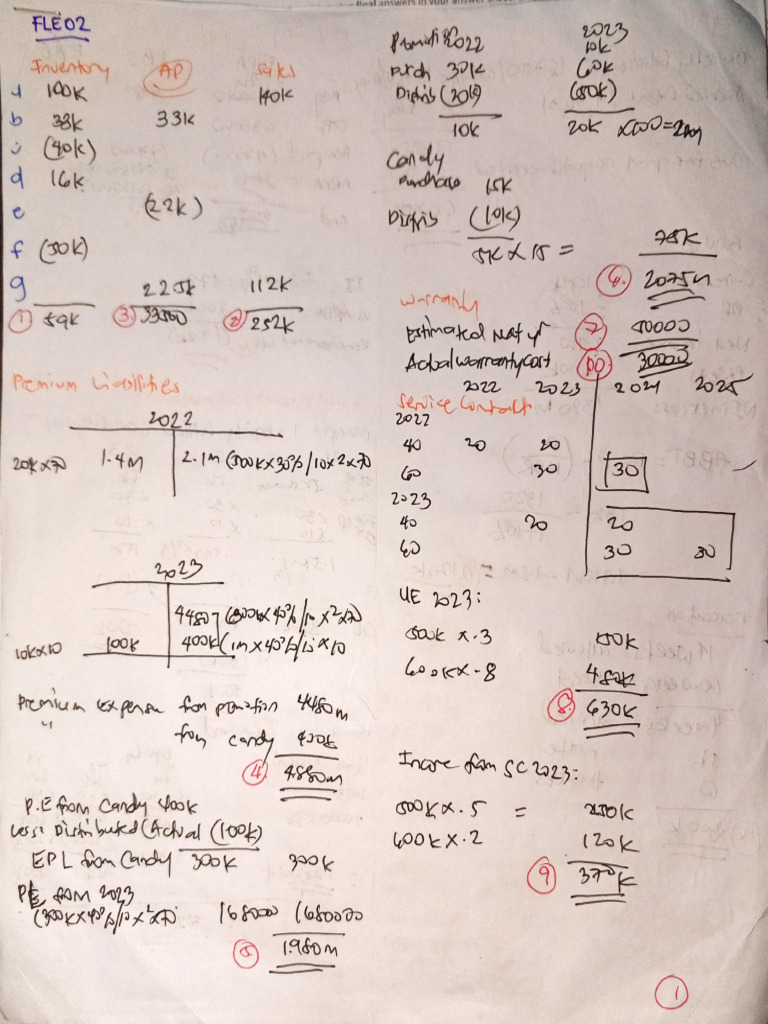 FLE02
Inventory AP Sales
a 140k 140k
b 33k 33k
c (40k)
d 16k
e (22k)
f (50k)
g 225k 112k
① 59k ③ 33500 ② 252k
Premium Liabilities
2022
20k x 70 1.4M 2.1m (500k x 30%/10 x 2 x 70
2023
4480 (800k x 40%/10 x 2 x 70
10k x 10 100k 400k (1m x 40%/10 x 10
Premium expense from promotion 4480m
" from candy 400k
④ 4.880m
P.E from Candy 400k
Less: Distributed (Actual (100k)
EPL from Candy 300k 300k
PE from 2023
(300k x 40%/10 x 2 x 70 168000 1680000
⑤ 1.980m
2022 2023
10k
Purch 30k 60k
Distrib (20k) (50k)
10k 20k x 100 = 2m
Candy
Purchase 15k
Distrib (10k)
5k x 15 = 75k
⑥ 2075m
Warranty
Estimated ⑦ 50000
Actual warranty cost ⑩ 30000
2022 2023 2024 2025
Service Contract
2022
40 20 20
60 30 30
2023
40 20 20
60 30 30
UE 2023:
500k x .3 150k
600k x .8 480k
⑧ 630k
Income from SC 2023:
500k x .5 = 250k
600k x .2 120k
⑨ 370k
①